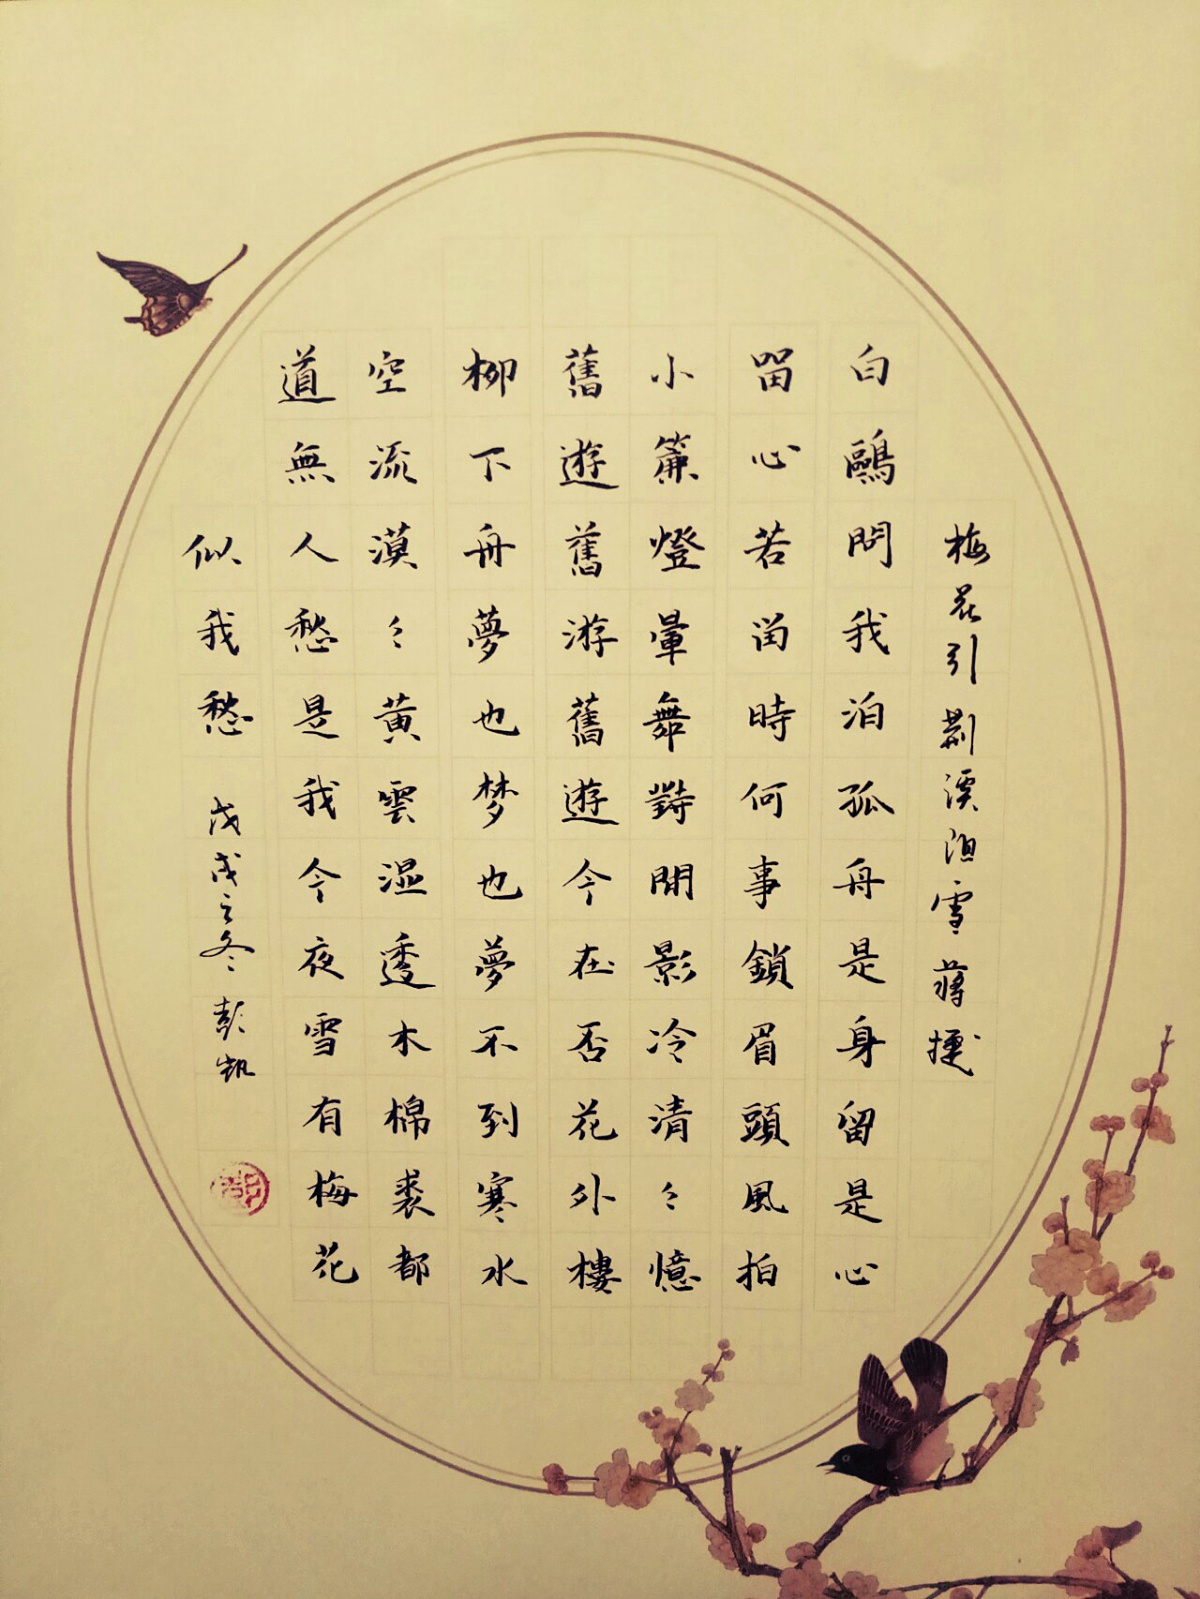 梅花引 荆溪阻雪 蔣捷
白鷗問我泊孤舟是身留是心
畱心若畱時何事鎖眉頭風拍
小簾燈暈舞對閒影冷清〻憶
舊遊舊游舊遊今在否花外樓
柳下舟夢也梦也夢不到寒水
空流漠〻黃雲湿透木棉裘都
道無人愁是我今夜雪有梅花
似我愁 戊戌之冬 彭凱